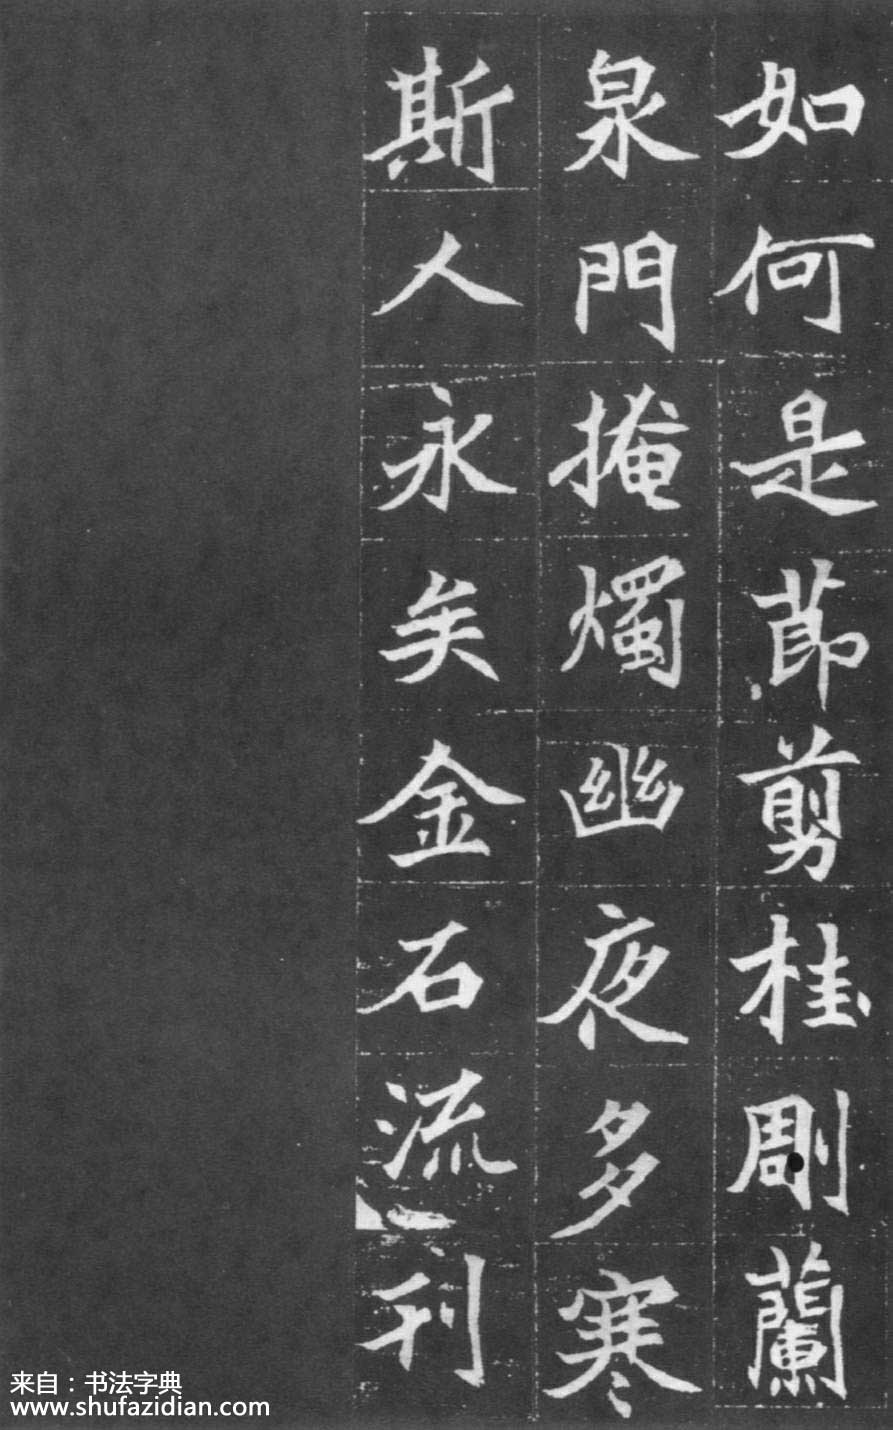 如何是莭剪桂㓮蘭
泉門掩燭幽夜多寒
斯人永矣金石流刊
来自：书法字典
www.shufazidian.com